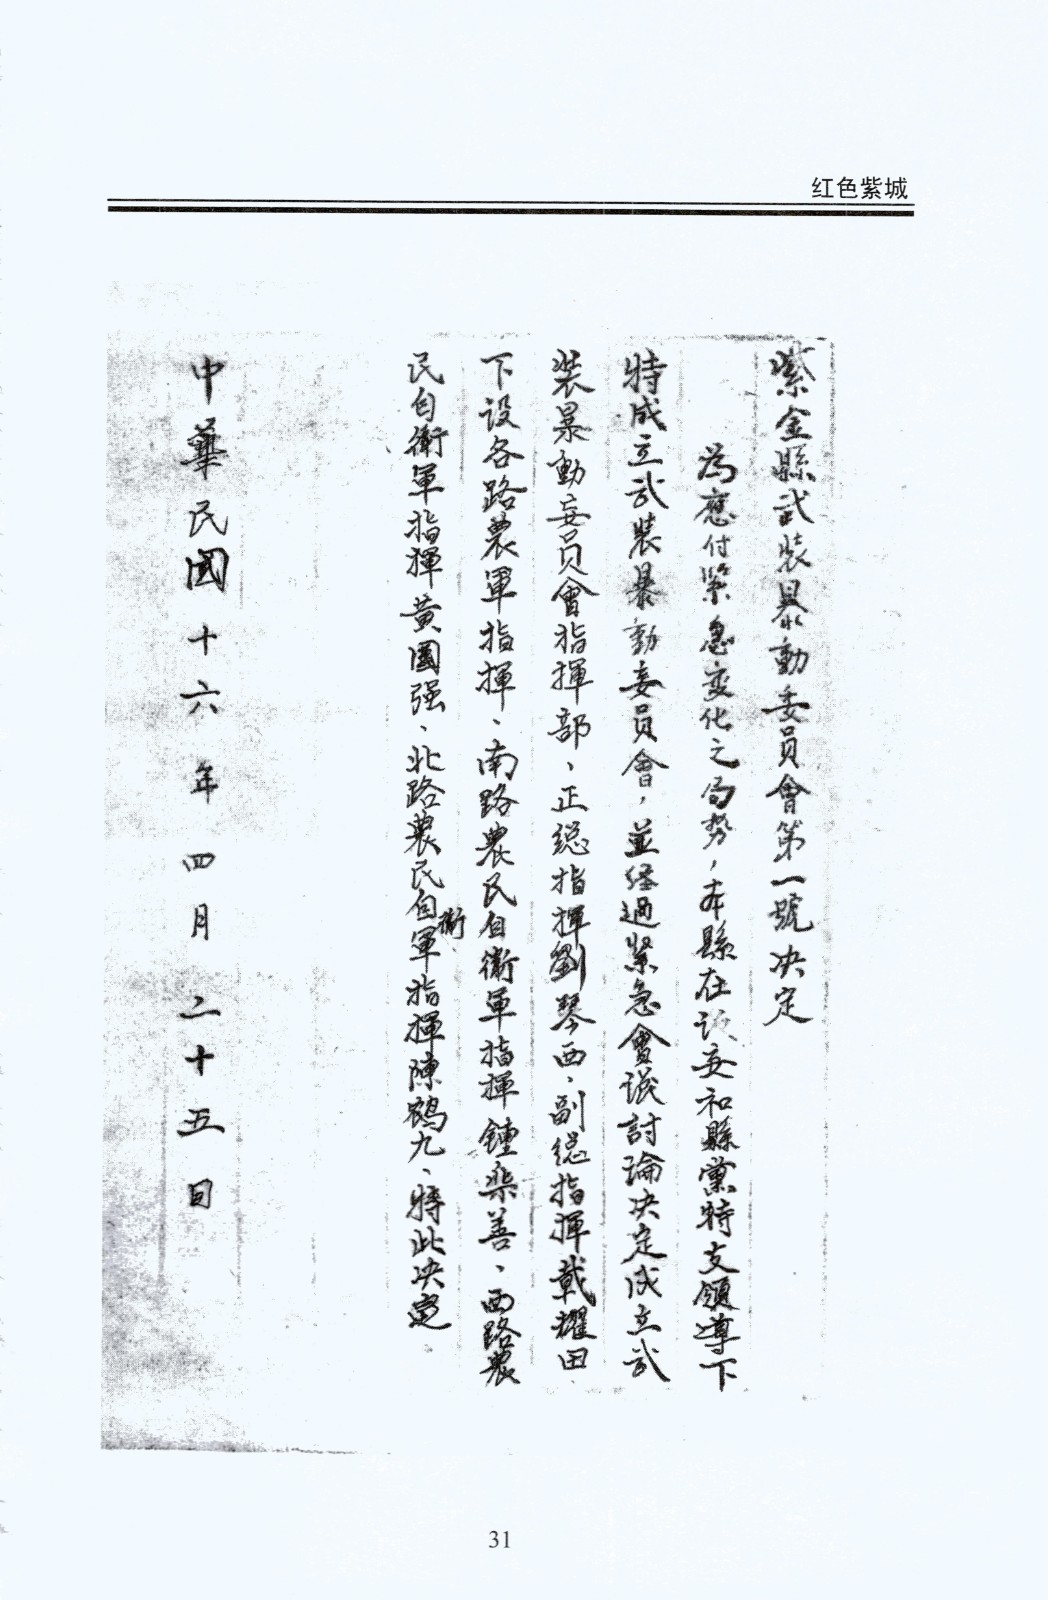 红色紫城
紫金縣武装暴動委員會第一號决定
為應付紧急变化之局势，本縣在 委和縣黨特支領導下
特成立武装暴動委員會，並经过紧急會議討論决定成立武
装暴動委員會指揮部、正総指揮劉琴西、副総指揮戴耀田
下设各路農軍指揮、南路農民自衛軍指揮鍾 善、西路農
民自衛軍指揮黄國强、北路農民自衛軍指揮陳鹤九、特此决定
中華民國十六年四月二十五日
31